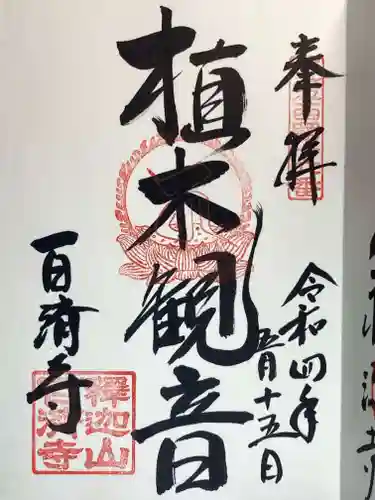 奉拝
令和四年
五月十五日
植木観音
百済寺
釋迦山
百済寺